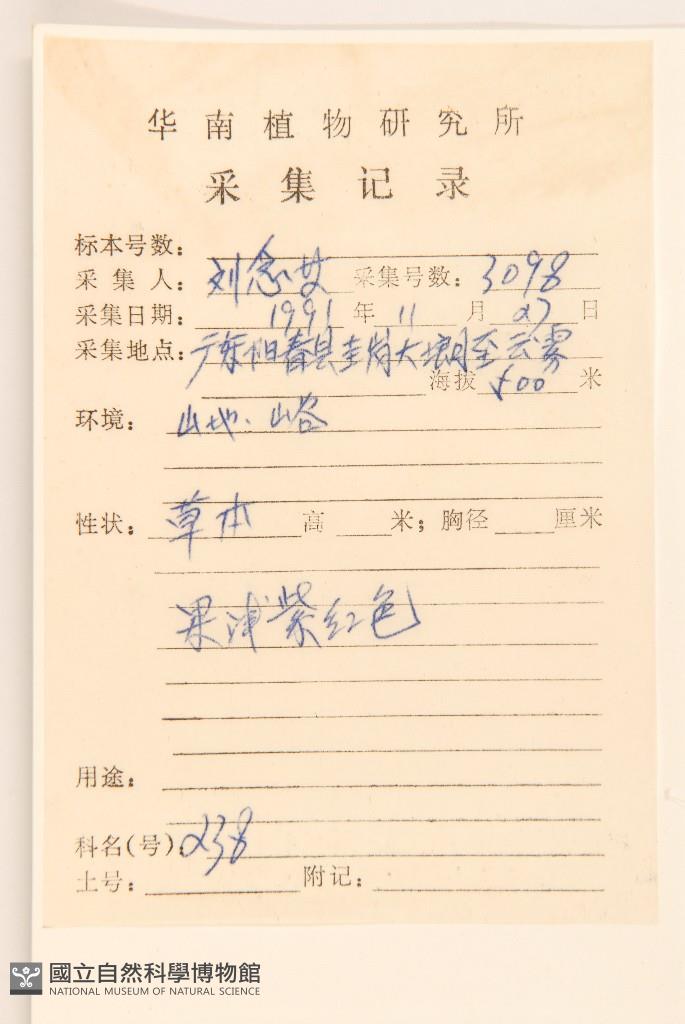 华南植物研究所
采集记录
标本号数：
采集人：刘念 采集号数：3098
采集日期：1991年11月27日
采集地点：广东阳春县圭岗大塱至云雾
海拔 500 米
环境：山地.山谷
性状：草本 高 米；胸径 厘米
果浅紫红色
用途：
科名(号)：238
土号： 附记：
國立自然科學博物館
NATIONAL MUSEUM OF NATURAL SCIENCE